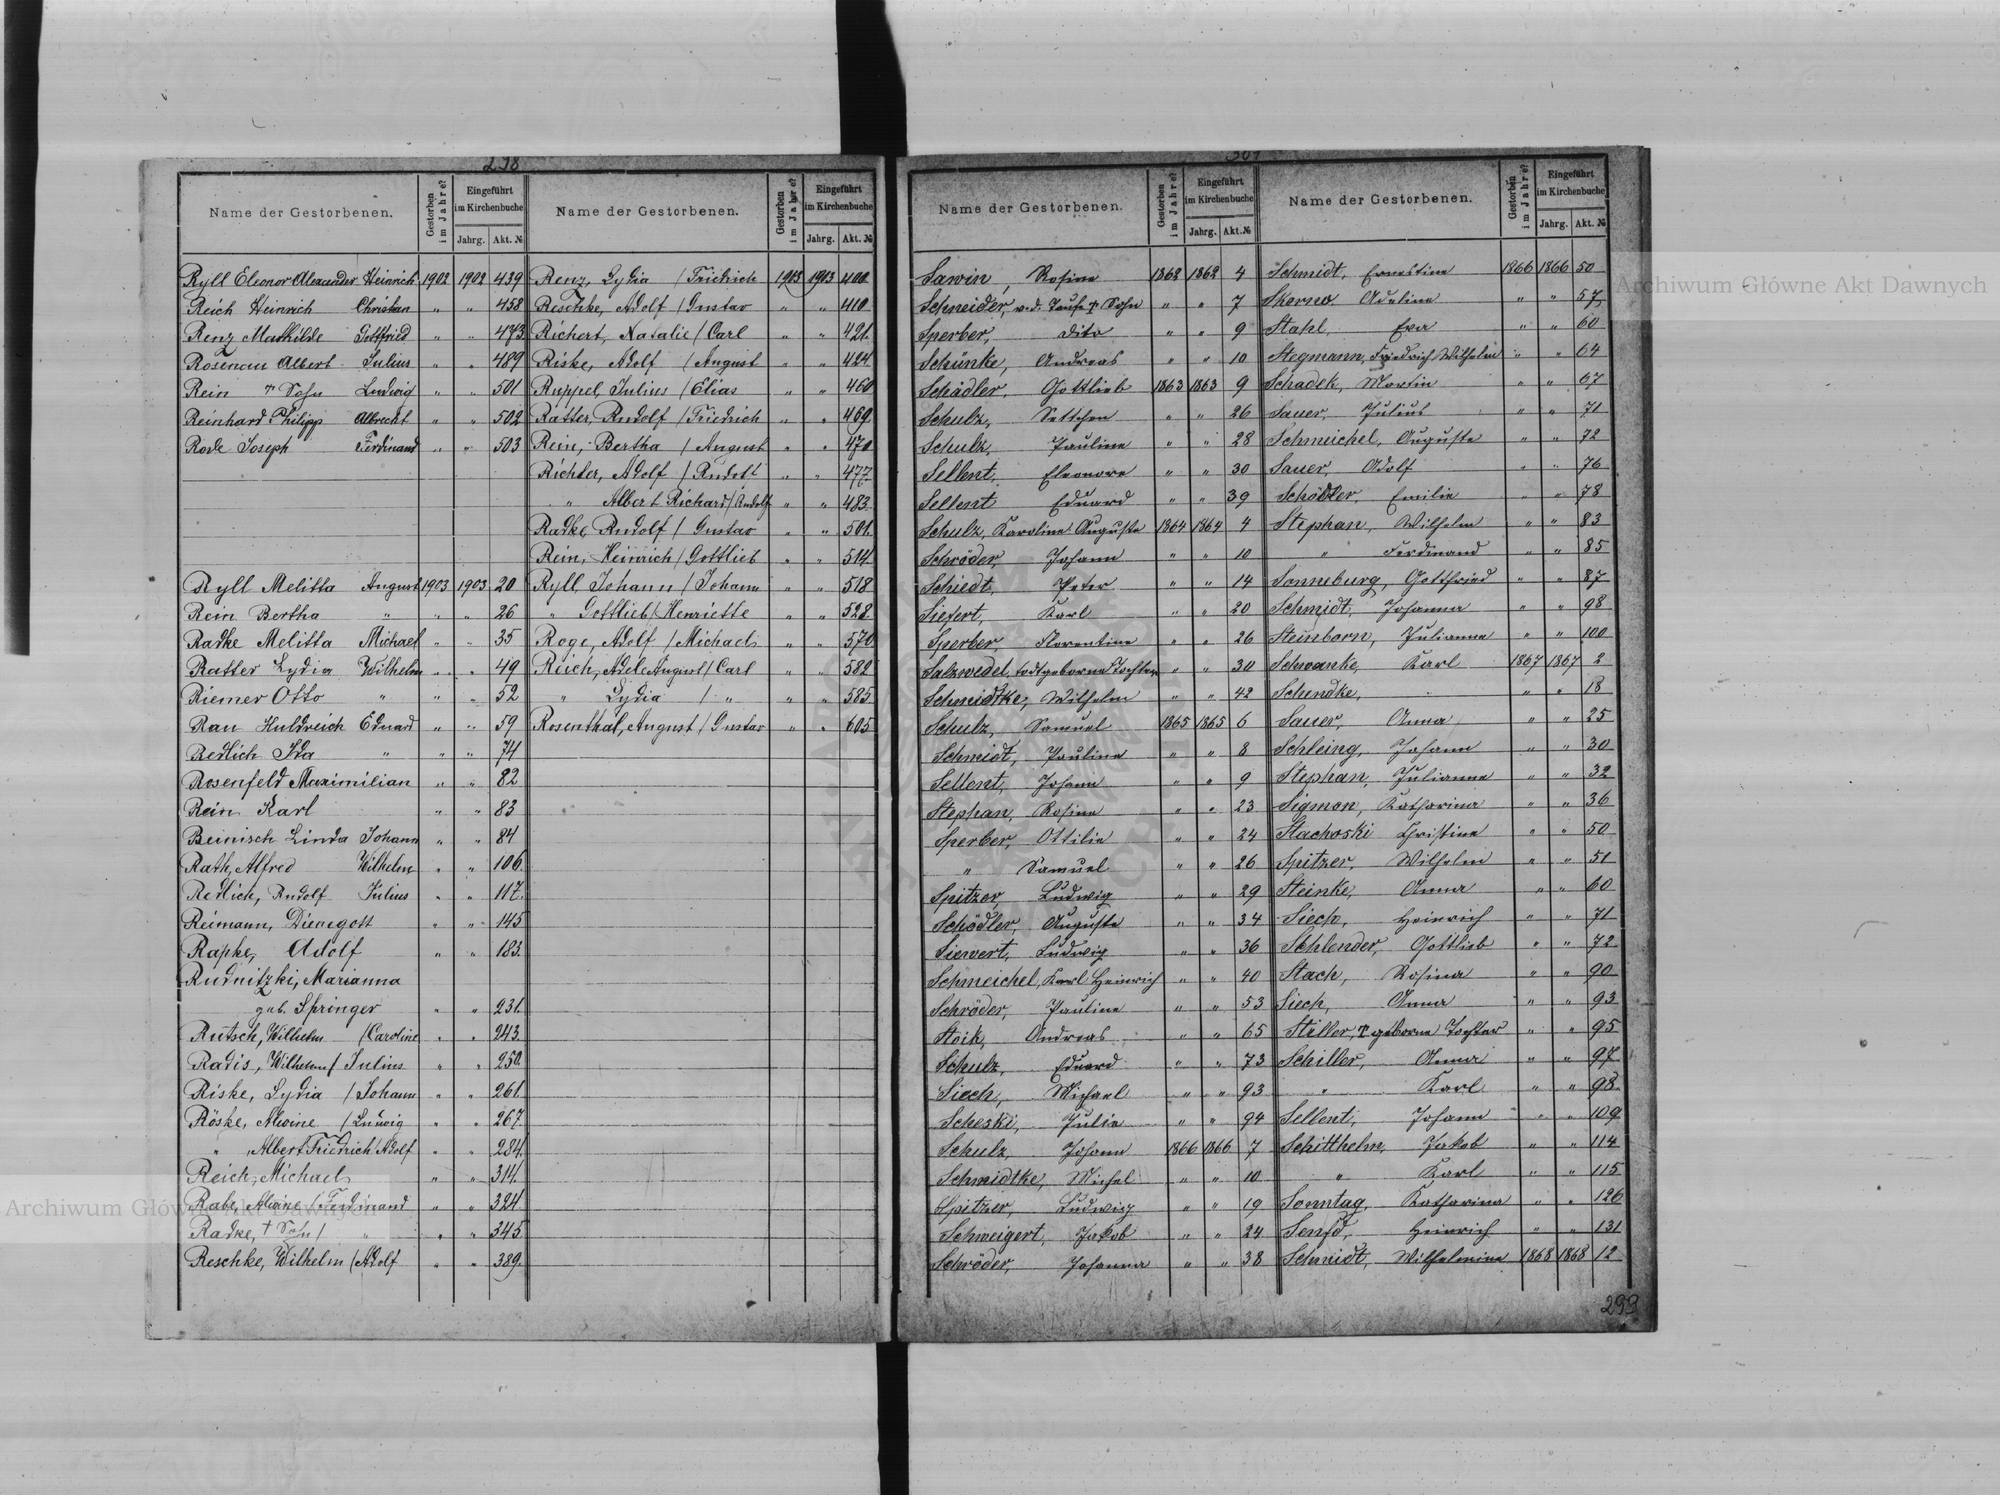 298
Name der Gestorbenen. Gestorben im Jahre? Eingeführt im Kirchenbuche Jahrg. Akt. №
Ryll Eleonor Alexander Heinrich 1902 1902 439
Reich Heinrich Christian " " 458
Renz Mathilde Gottfried " " 473
Rosenau Albert Julius " " 489
Rein † Sohn Ludwig " " 501
Reinhard Philipp Albrecht " " 502
Rode Joseph Ferdinand " " 503
Ryll Melitta August 1903 1903 20
Rein Bertha " " " 26
Radke Melitta Michael " " 35
Ratter Lydia Wilhelm " " 49
Riemer Otto " " " 52
Rau Huldreich Eduard " " 59
Redlich Ida " " " 74
Rosenfeld Maximilian " " 82
Rein Karl " " 83
Reinisch Linda Johann " " 84
Rath, Alfred Wilhelm " " 106
Redlich, Rudolf Julius " " 117
Reimann, " " 145
Rapke, Adolf " " 183
Rudnitzki, Marianna
geb. Springer " " 231
Rutsch, Wilhelm /Caroline " " 243
Radis, Wilhelm / Julius " " 250
Riske, Lydia /Johann " " 261
Röske, Alwine /Ludwig " " 267
" Albert Friedrich /Adolf " " 284
Reich, Michael " " 314
Rabe, Alwine /Ferdinand " " 324
Radke, † Sohn / " " " 345
Reschke, Wilhelm /Adolf " " 389
Name der Gestorbenen. Gestorben im Jahre? Eingeführt im Kirchenbuche Jahrg. Akt. №
Renz, Lydia /Friedrich 1903 1903 400
Reschke, Adolf /Gustav " " 410
Richert, Natalie /Carl " " 421
Riske, Adolf /August " " 424
Ruppel, Julius /Elias " " 460
Ratter, Rudolf /Friedrich " " 469
Rein, Bertha /August " " 470
Richter, Adolf /Rudolf " " 477
" Albert Richard /Rudolf " " 483
Radke, Rudolf / Gustav " " 501
Rein, Heinrich /Gottlieb " " 514
Ryll, Johann /Johann " " 518
" Gottlieb /Henriette " " 528
Roge, Adolf /Michael " " 570
Reich, Adele August /Carl " " 582
" Lydia / " " " 585
Rosenthal, August /Gustav " " 605
301
Name der Gestorbenen. Gestorben im Jahre? Eingeführt im Kirchenbuche Jahrg. Akt. №
Sawin, Rosine 1862 1862 4
Schneider, v.d. Taufe † Sohn " " 7
Sperber, dito " " 9
Schünke, Andreas " " 10
Schädler, Gottlieb 1863 1863 9
Schulz, " " 26
Schulz, Pauline " " 28
Sellent, Eleonore " " 30
Sellent Eduard " " 39
Schulz, Karoline Auguste 1864 1864 4
Schröder, Johann " " 10
Schiedt, Peter " " 14
Siefert, Karl " " 20
Sperber, Florentine " " 26
Salzwedel, todtgeborene Tochter " " 30
Schmidtke, Wilhelm " " 42
Schulz, Samuel 1865 1865 6
Schmidt, Pauline " " 8
Sellent, Johann " " 9
Stephan, Rosine " " 23
Sperber, Ottilie " " 24
" Samuel " " 26
Spitzer, Ludwig " " 29
Schödler, Auguste " " 34
Siewert, Ludwig " " 36
Schmeichel, Karl Heinrich " " 40
Schröder, Pauline " " 53
Stoik, Andreas " " 65
Schulz, Eduard " " 73
Siech, Michael " " 93
Scheski, Julie " " 94
Schulz, Johann 1866 1866 7
Schmidtke, Michel " " 10
Spitzer, Ludwig " " 19
Schweigert, Jakob " " 24
Schröder, Johanna " " 38
Name der Gestorbenen. Gestorben im Jahre? Eingeführt im Kirchenbuche Jahrg. Akt. №
Schmidt, Ernestine 1866 1866 50
Skorna Adeline " " 57
Stahl, Eva " " 60
Stegmann, Friedrich Wilhelm " " 64
Schadek, Martin " " 67
Sauer, Julius " " 71
Schmeichel, Auguste " " 72
Sauer, Adolf " " 76
Schödler, Emilie " " 78
Stephan, Wilhelm " " 83
" Ferdinand " " 85
Sonneburg, Gottfried " " 87
Schmidt, Johanna " " 98
Steinborn, Julianna " " 100
Schwanke, Karl 1867 1867 2
Schendke, " " 18
Sauer, Anna " " 25
Schleing, Johann " " 30
Stephan, Julianna " " 32
Sigmon, Katharina " " 36
Stachoski Christine " " 50
Spitzer, Wilhelm " " 51
Steinke, Anna " " 60
Siech, Heinrich " " 71
Schlender, Gottlieb " " 72
Stach, Rosina " " 90
Siech, Anna " " 93
Stiller, † geborene Tochter " " 95
Schiller, Anna " " 97
" Karl " " 98
Sellent, Johann " " 109
Schitthelm, Jakob " " 114
" Karl " " 115
Sonntag, Katharina " " 126
Senfd, Heinrich " " 131
Schmidt, Wilhelmine 1868 1868 12
299
Archiwum Główne Akt Dawnych
Archiwum Główne Akt Dawnych